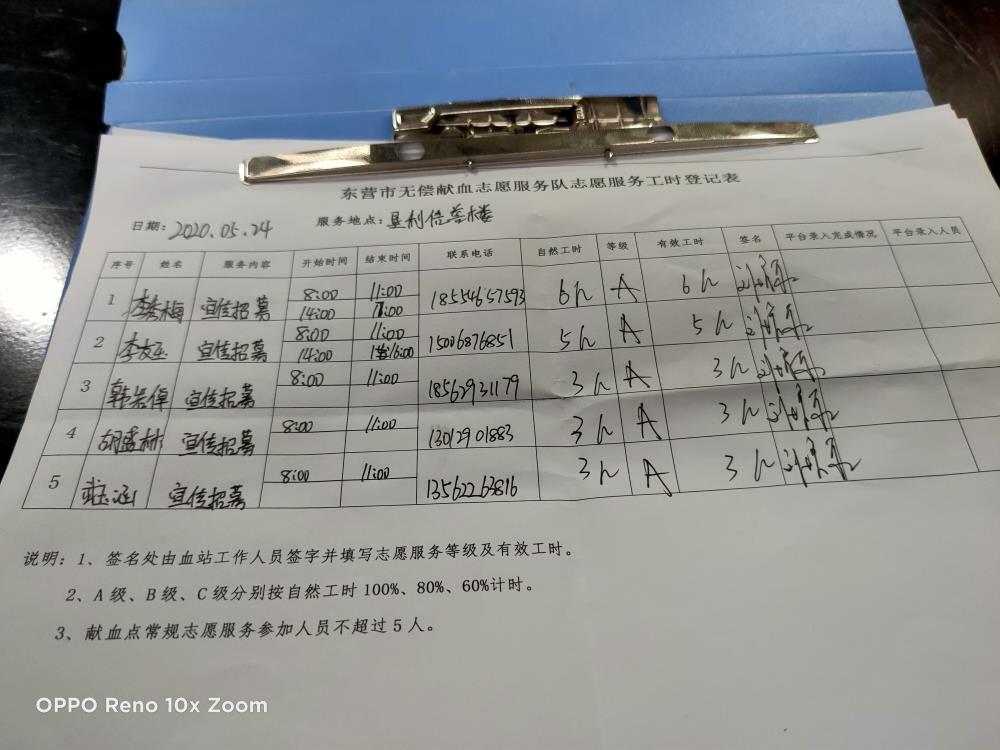 东营市无偿献血志愿服务队志愿服务工时登记表
日期: 2020.05.24 服务地点: 垦利信誉楼
序号 姓名 服务内容 开始时间 结束时间 联系电话 自然工时 等级 有效工时 签名 平台录入完成情况 平台录入人员
1 李秀梅 宣传招募 8:00 11:00 18554657593 6h A 6h
14:00
2 李友玉 宣传招募 8:00 11:00 15006876851 5h A 5h
14:00 16:00
3 宣传招募 8:00 11:00 18562931179 3h A 3h
4 胡盛林 宣传招募 8:00 11:00 13012901883 3h A 3h
5 宣传招募 8:00 11:00 13562263816 3h A 3h
说明: 1、签名处由血站工作人员签字并填写志愿服务等级及有效工时。
2、A级、B级、C级分别按自然工时100%、80%、60%计时。
3、献血点常规志愿服务参加人员不超过5人。
OPPO Reno 10x Zoom